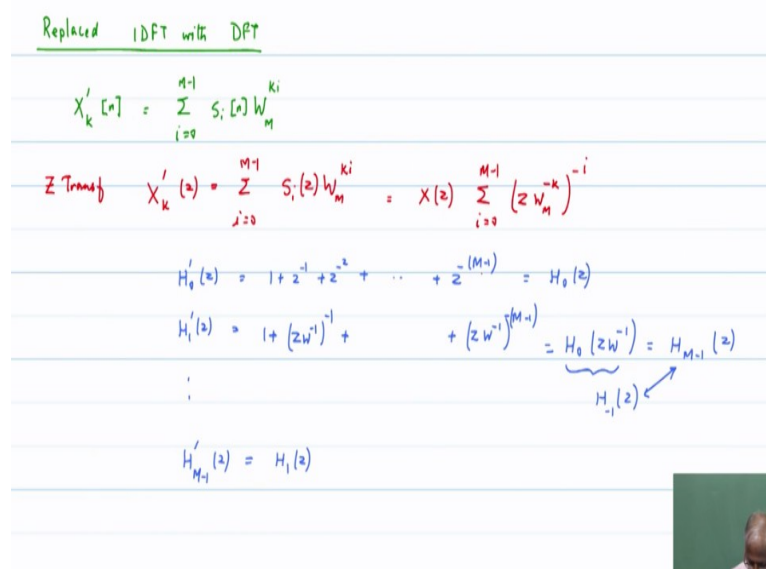 Replaced IDFT with DFT
X'_k [n] = Σ_{i=0}^{M-1} s_i [n] W_M^{ki}
Z Transf X'_k (z) = Σ_{i=0}^{M-1} S_i (z) W_M^{ki} = X(z) Σ_{i=0}^{M-1} (z W_M^{-k})^{-i}
H'_0 (z) = 1 + z^{-1} + z^{-2} + ·· + z^{-(M-1)} = H_0 (z)
H'_1 (z) = 1 + (zW^{-1})^{-1} + + (zW^{-1})^{-(M-1)} = H_0 (zW^{-1}) = H_{M-1} (z)
H_{-1} (z)
⋮
H'_{M-1} (z) = H_1 (z)